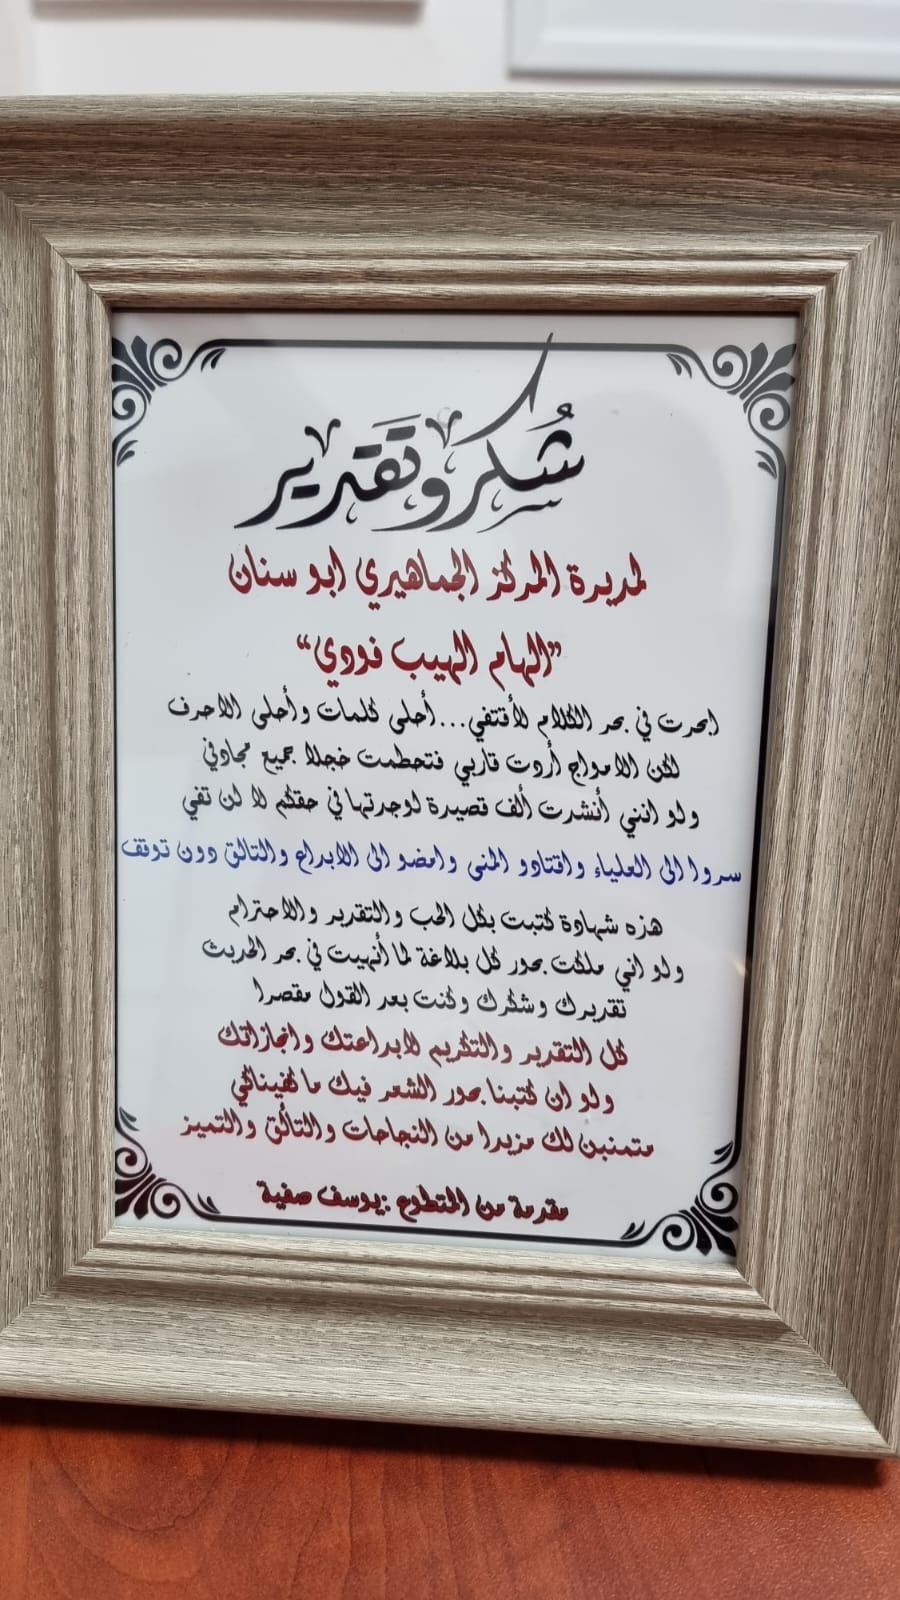 شُكر وتَقدير
لمديرة المركز الجماهيري ابو سنان
"الهام الهيب فودي"
ابحرت في بحر الكلام لأقتفي...أحلى كلمات وأحلى الاحرف
لكن الامواج أردت قاربي فتحطمت خجلا جميع مجادفي
ولو انني أنشرت ألف قصيدة لوجدتها في حقكم لا لن تفي
سروا الى العلياء واقتادو المنى وامضو الى الابداع والتالق دون توقف
هذه شهادة كتبت بكل الحب والتقدير والاحترام
ولو اني ملكت بحور كل بلاغة لما أنهيت في بحر الحديث
تقديرك وشكرك وكنت بعد القول مقصرا
كل التقدير والتكريم لابداعتك وانجازاتك
ولو ان كتبنا بحور الشعر فيك ما كفيناكي
متمنين لك مزيدا من النجاحات والتألق والتميز
مقدمة من المتطوع :يوسف صفية